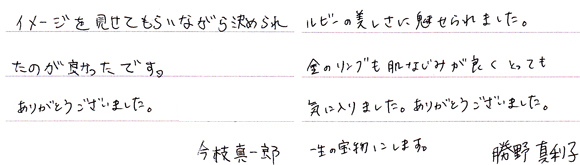 イメージを見せてもらいながら決められ
たのが良かったです。
ありがとうございました。
今枝真一郎
ルビーの美しさに魅せられました。
金のリングも肌なじみが良くとっても
気に入りました。ありがとうございました。
一生の宝物にします。 勝野真利子